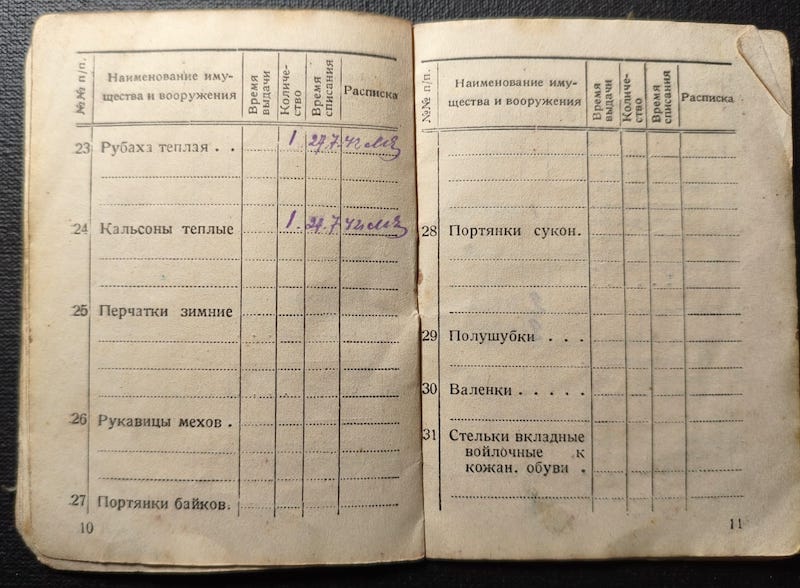 №№ п/п.
Наименование иму-
щества и вооружения
Время
выдачи
Количе-
ство
Время
списания
Расписка
23 Рубаха теплая . . 1 27.7.42
24 Кальсоны теплые 1 27.7.42
25 Перчатки зимние
26 Рукавицы мехов .
27 Портянки байков.
10
№№ п/п.
Наименование иму-
щества и вооружения
Время
выдачи
Количе-
ство
Время
списания
Расписка
28 Портянки сукон.
29 Полушубки . . .
30 Валенки . . . . .
31 Стельки вкладные
войлочные к
кожан. обуви .
11